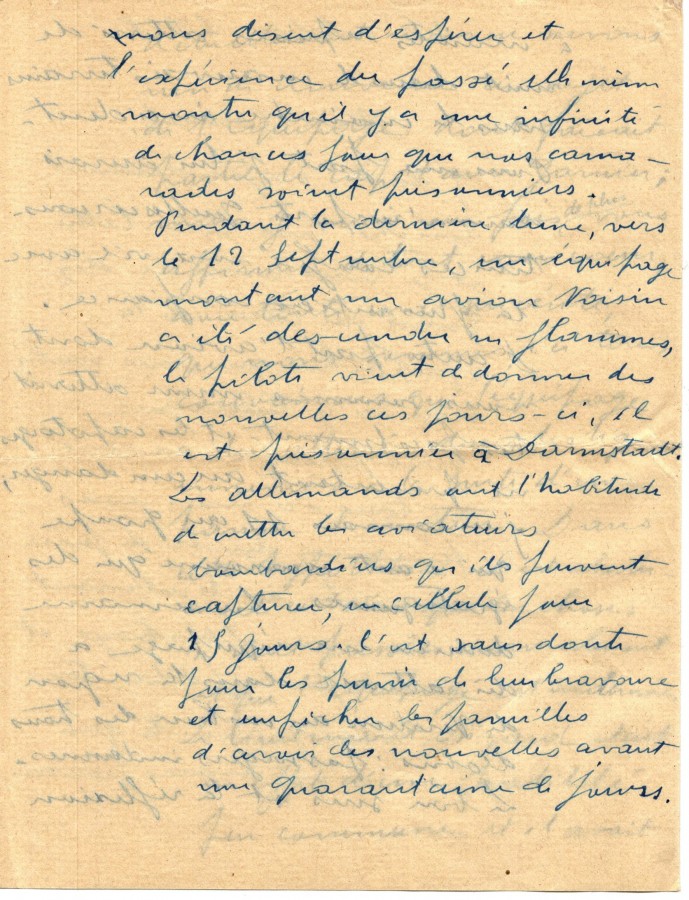 nous disent d'espérer et
l'expérience du passé elle même
montre qu'il y a une infinité
de chances pour que nos cama-
rades soient prisonniers.
Pendant la dernière lune, vers
le 12 Septembre, un équipage
montant un avion Voisin
a été descendu en flammes,
le pilote vient de donner des
nouvelles ces jours-ci, il
est prisonnier à Darmstadt.
Les allemands ont l'habitude
de mettre les aviateurs
bombardiers qu'ils peuvent
capturer, en cellule pour
15 jours. C'est sans doute
pour les punir de leur bravoure
et empêcher les familles
d'avoir des nouvelles avant
une quarantaine de jours.